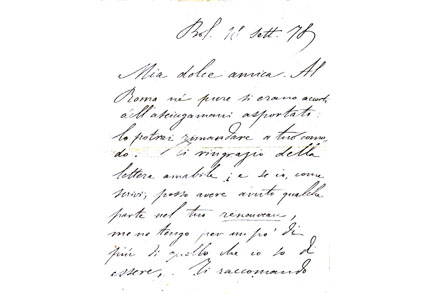 Bol. 12 Sett. 78
Mia dolce amica. Al
Roma né pure si erano accorti
dell'asciugamani asportati:
lo potrai rimandare a tuo como-
do. Ti ringrazio della
lettera amabile; e se io, come
scrivi, posso avere avuto qualche
parte nel tuo renouveau,
me ne tengo per un po' di
più di quello che io so di
essere. Ti raccomando